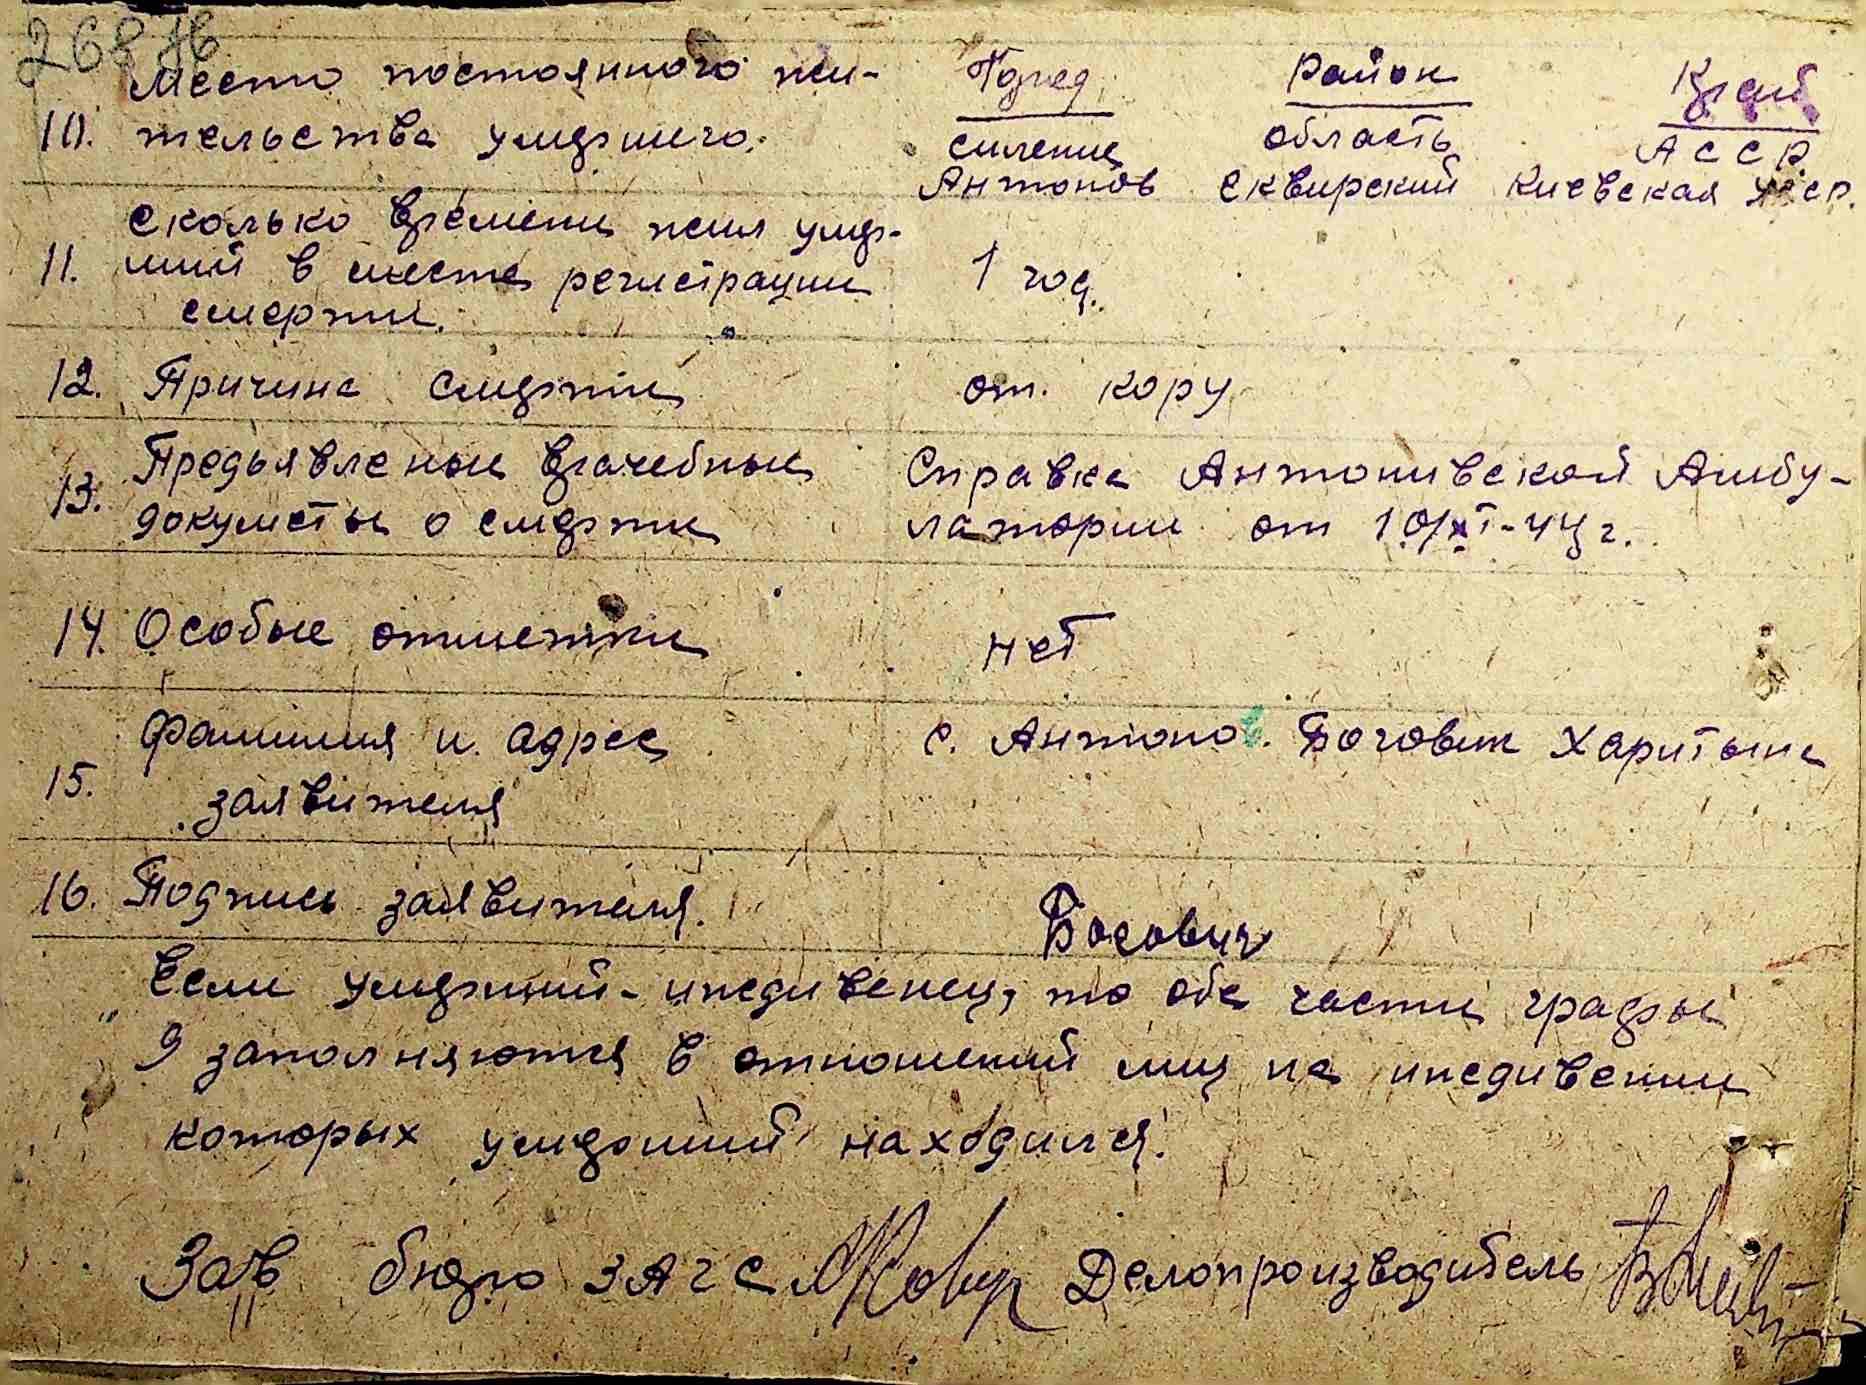 268
Место постоянного жи-
Город Район Край
10. тельства умершего.
селение область АССР
Антонов Сквирский Киевская УССР.
Сколько времени жил умер-
11. ший в месте регистрации 1 год.
смерти.
12. Причина смерти от кору
13. Предьявленые врачебные Справка Антонивской Амбу-
докуметы о смерти латории от 10/XI-44 г.
14. Особые отметки нет
Фамилия и адрес с. Антонов. Богович Харитына
15. заявителя
16. Подпись заявителя. Босович
Если умерший-иждивенец, то обе части графы
9 заполняются в отношений лиц на иждивении
которых умерший находился.
Зав бюро ЗАГС Делопроизводитель